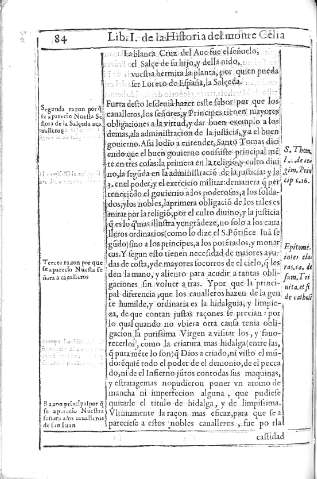 84 Lib. I. de la Historia del monte Celia
La blanca Cruz del Aue fue el señuelo,
el Salçe de su hijo, y della nido,
vuestra hermita la planta, por quien pueda
ser Loreto de España, la Salçeda.
Segunda razon por q̃
se apareciò Nuestra Se
ñora de la Salçeda a ca
ualleros
Fuera desto les deuia hazer este fabor por que los
caualleros, los señores, y Principes tienen mayores
obligaciones a la virtud, y dar buen exemplo a los
demas, a la administracion de la justicia, y a el buen
gouierno. Assi lo dio a entender, Santo Tomas dici
endo que el buen gouierno consiste principal mẽ
te en tres cosas, la primera en la religiõ, y culto diui
no, la segũda en la administraciõ de la justicia: y la
3. en el poder, y el exercicio militar de manera q̃ per
teneciẽdo el gouierno a los poderosos, a los solda-
dos, y los nobles, la primera obligació de los tales es
mirar por la religiõ, por el culto diuino, y la justicia
q̃ es lo q̃ mas illustra y engrãdeze, no solo a los caua
lleros ordinarios (como lo dize el S. Põtifice
sino a los principes, a los potẽtados, y monar
cas. Y segun esto tienen necesidad de mayores ayu-
das de costa, de mayores socorros de el cielo, q̃ les
den la mano, y aliento para acudir a tantas obli-
gaciones sin voluer a tras. Y por que la princi-
pal diferencia, que los caualleros hazen de la gen
te humilde, y ordinaria es la hidalguia, y limpie-
za, de que contan justas raçones se precian: por
lo qual quando no vbiera otra causa tenia obli-
gacion la purissima Virgen a visitar los, y fauo-
recerlos, como la criatura mas hidalga (entre las,
q̃ pura mẽte lo son) q̃ Dios a criado, ni visto el mũ-
do: è quiẽ todo el poder de el demonio, de el peca
do, ni de el Infierno jũtos con todas sus maquinas,
y estratagemas no pudieron poner vn atomo de
mancha ni imperfeccion alguna, que pudiese
quitarle el titulo de hidalga, y de limpissima.
Vltimamente la raçon mas eficaz, para que se a
pareciese a estos nobles caualleros, fue por la
castidad
S. Thom.
Tercera razon por que
se apareciò Nuestra Se
ñora a caualleros
Raçon principal por q̃
se apareciò Nuestra
señora a los caualleros
de san Iuan